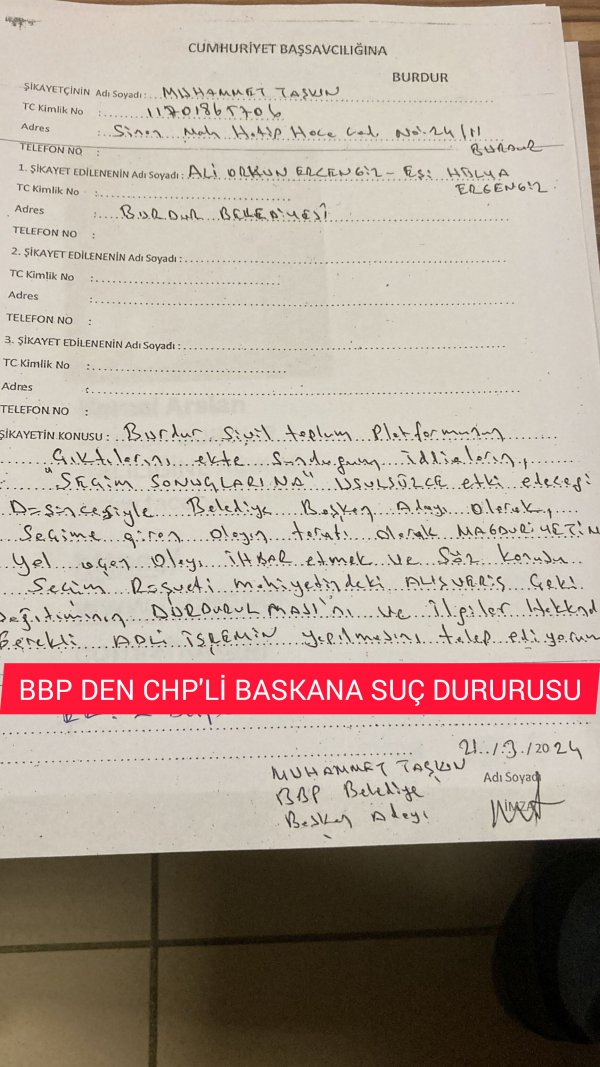 CUMHURİYET BAŞSAVCILIĞINA
BURDUR
ŞİKAYETÇİNİN Adı Soyadı : MUHAMMET TAŞKIN
TC Kimlik No : 11701865706
Adres : Sinan Mah Hatip Hoca Cad. No: 24/11
TELEFON NO : BURDUR
1. ŞİKAYET EDİLENENİN Adı Soyadı : ALİ ORKUN ERCENGİZ - EŞİ HÜLYA
TC Kimlik No : ERGENGİZ
Adres : BURDUR BELEDİYESİ
TELEFON NO :
2. ŞİKAYET EDİLENENİN Adı Soyadı :
TC Kimlik No :
Adres :
TELEFON NO :
3. ŞİKAYET EDİLENENİN Adı Soyadı :
TC Kimlik No :
Adres :
TELEFON NO :
ŞİKAYETİN KONUSU : Burdur Sivil toplum Platformunun
Çıktılarını ekte Sunduğum iddiaların,
"SEÇİM SONUÇLARINA" USULSÜZCE etki edeceği
Düşüncesiyle Belediye Başkan Adayı Olarak,
Seçime giren olayın tarafı olarak MAĞDURİYETİN
Yol açan Olayı İHBAR etmek ve Söz konusu
Seçim Rüşveti mahiyetindeki ALIŞVERİŞ Çeki
Dağıtımının DURDURULMASI'nı ve İlgiler Hakkında
Gerekli ADLİ İŞLEMİN yapılmasını talep ediyorum
BBP DEN CHP'Lİ BASKANA SUÇ DURURUSU
21../3./2024
MUHAMMET TAŞKIN
Adı Soyadı
BBP Belediye
İMZA
Başkan Adayı